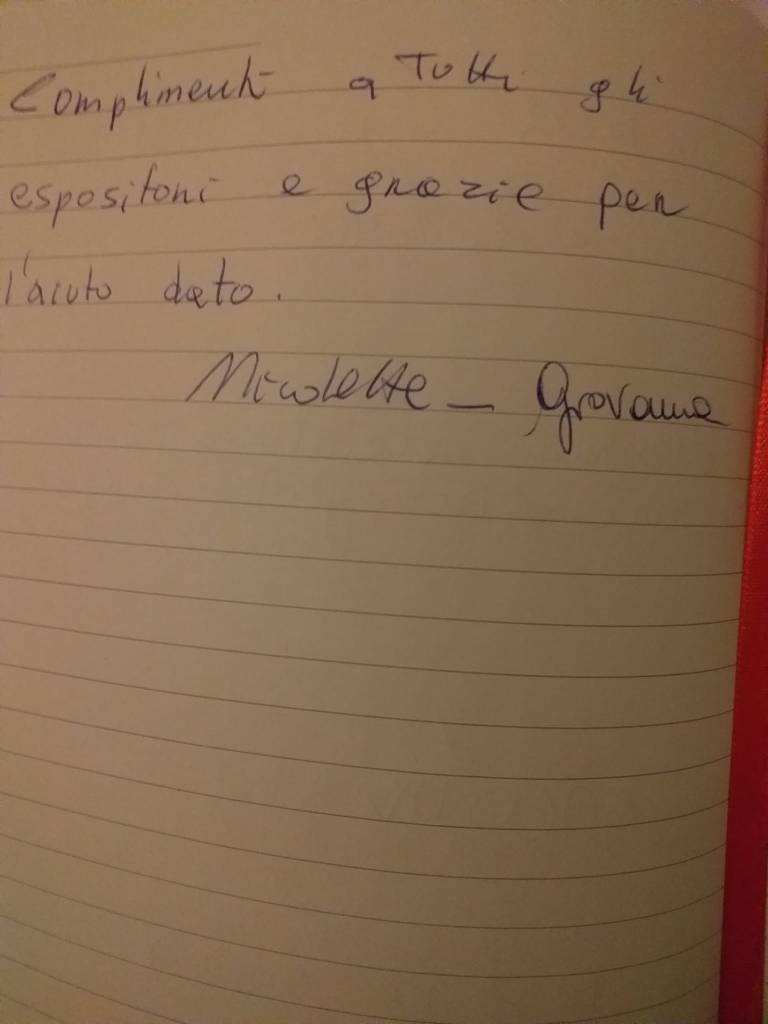 Complimenti a Tutti gli
espositori e grazie per
l'aiuto dato.
Nicolette - Giovanna